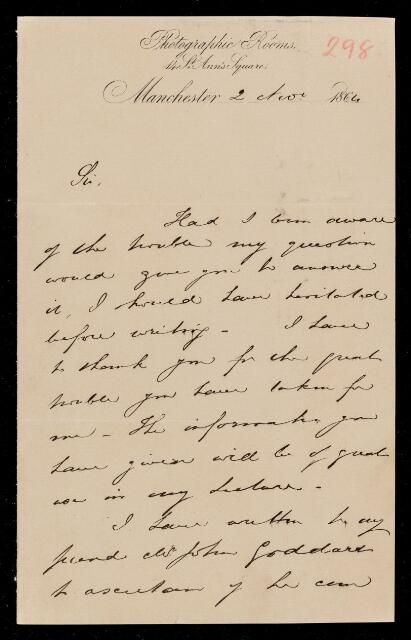 Photographic Rooms.
298
14 St. Ann's Square.
Manchester 2 Nov. 1864
Sir,
Had I been aware
of the trouble my question
would give you to answer
it, I should have hesitated
before writing - I have
to thank you for the great
trouble you have taken for
me - The information you
have given will be of great
use in my lecture -
I have written to my
friend Mr John Goddard
to ascertain if he can